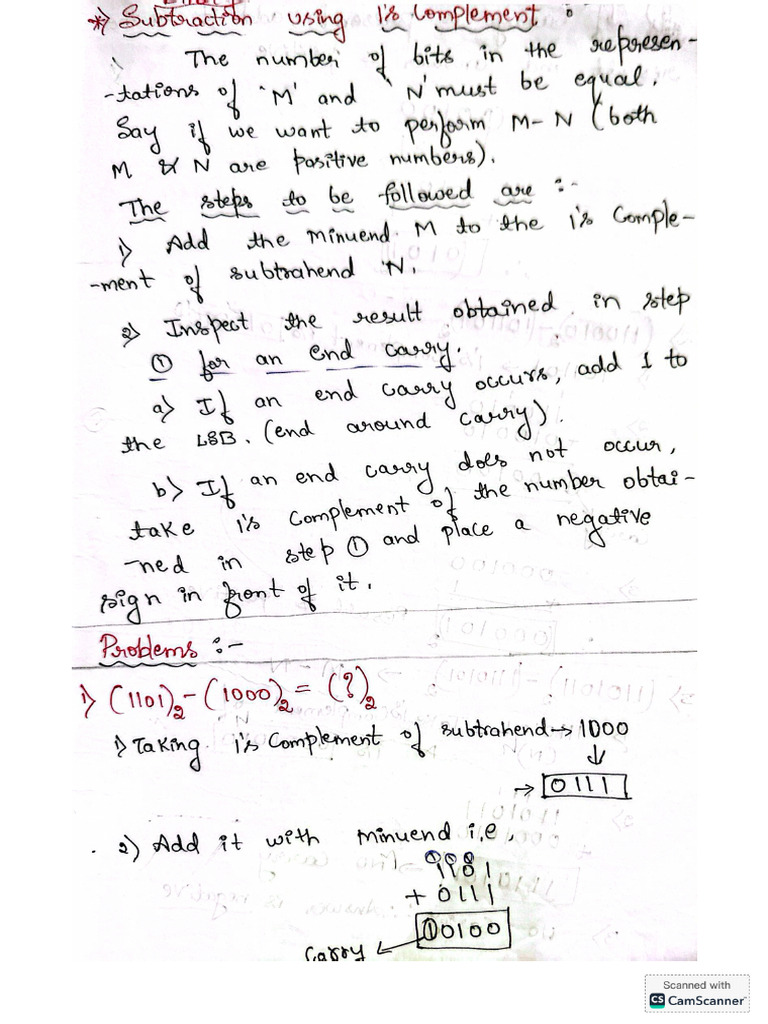 *) Subtraction using 1's Complement :
The number of bits in the represen-
-tations of 'M' and 'N' must be equal.
Say if we want to perform M-N (both
M & N are positive numbers).
The steps to be followed are :-
1) Add the minuend M to the 1's Comple-
-ment of subtrahend 'N.
2) Inspect the result obtained in step
① for an end carry.
a) If an end carry occurs, add 1 to
the LSB. (end around carry).
b) If an end carry does not occur,
take 1's Complement of the number obtai-
-ned in step ① and place a negative
sign in front of it.
Problems :-
1) (1101)₂ - (1000)₂ = (?)₂
1) Taking 1's Complement of subtrahend → 1000
↓
→ 0111
2) Add it with minuend i,e,
①①①
1101
+ 0111
①0100
Carry ←
Scanned with
CS CamScanner